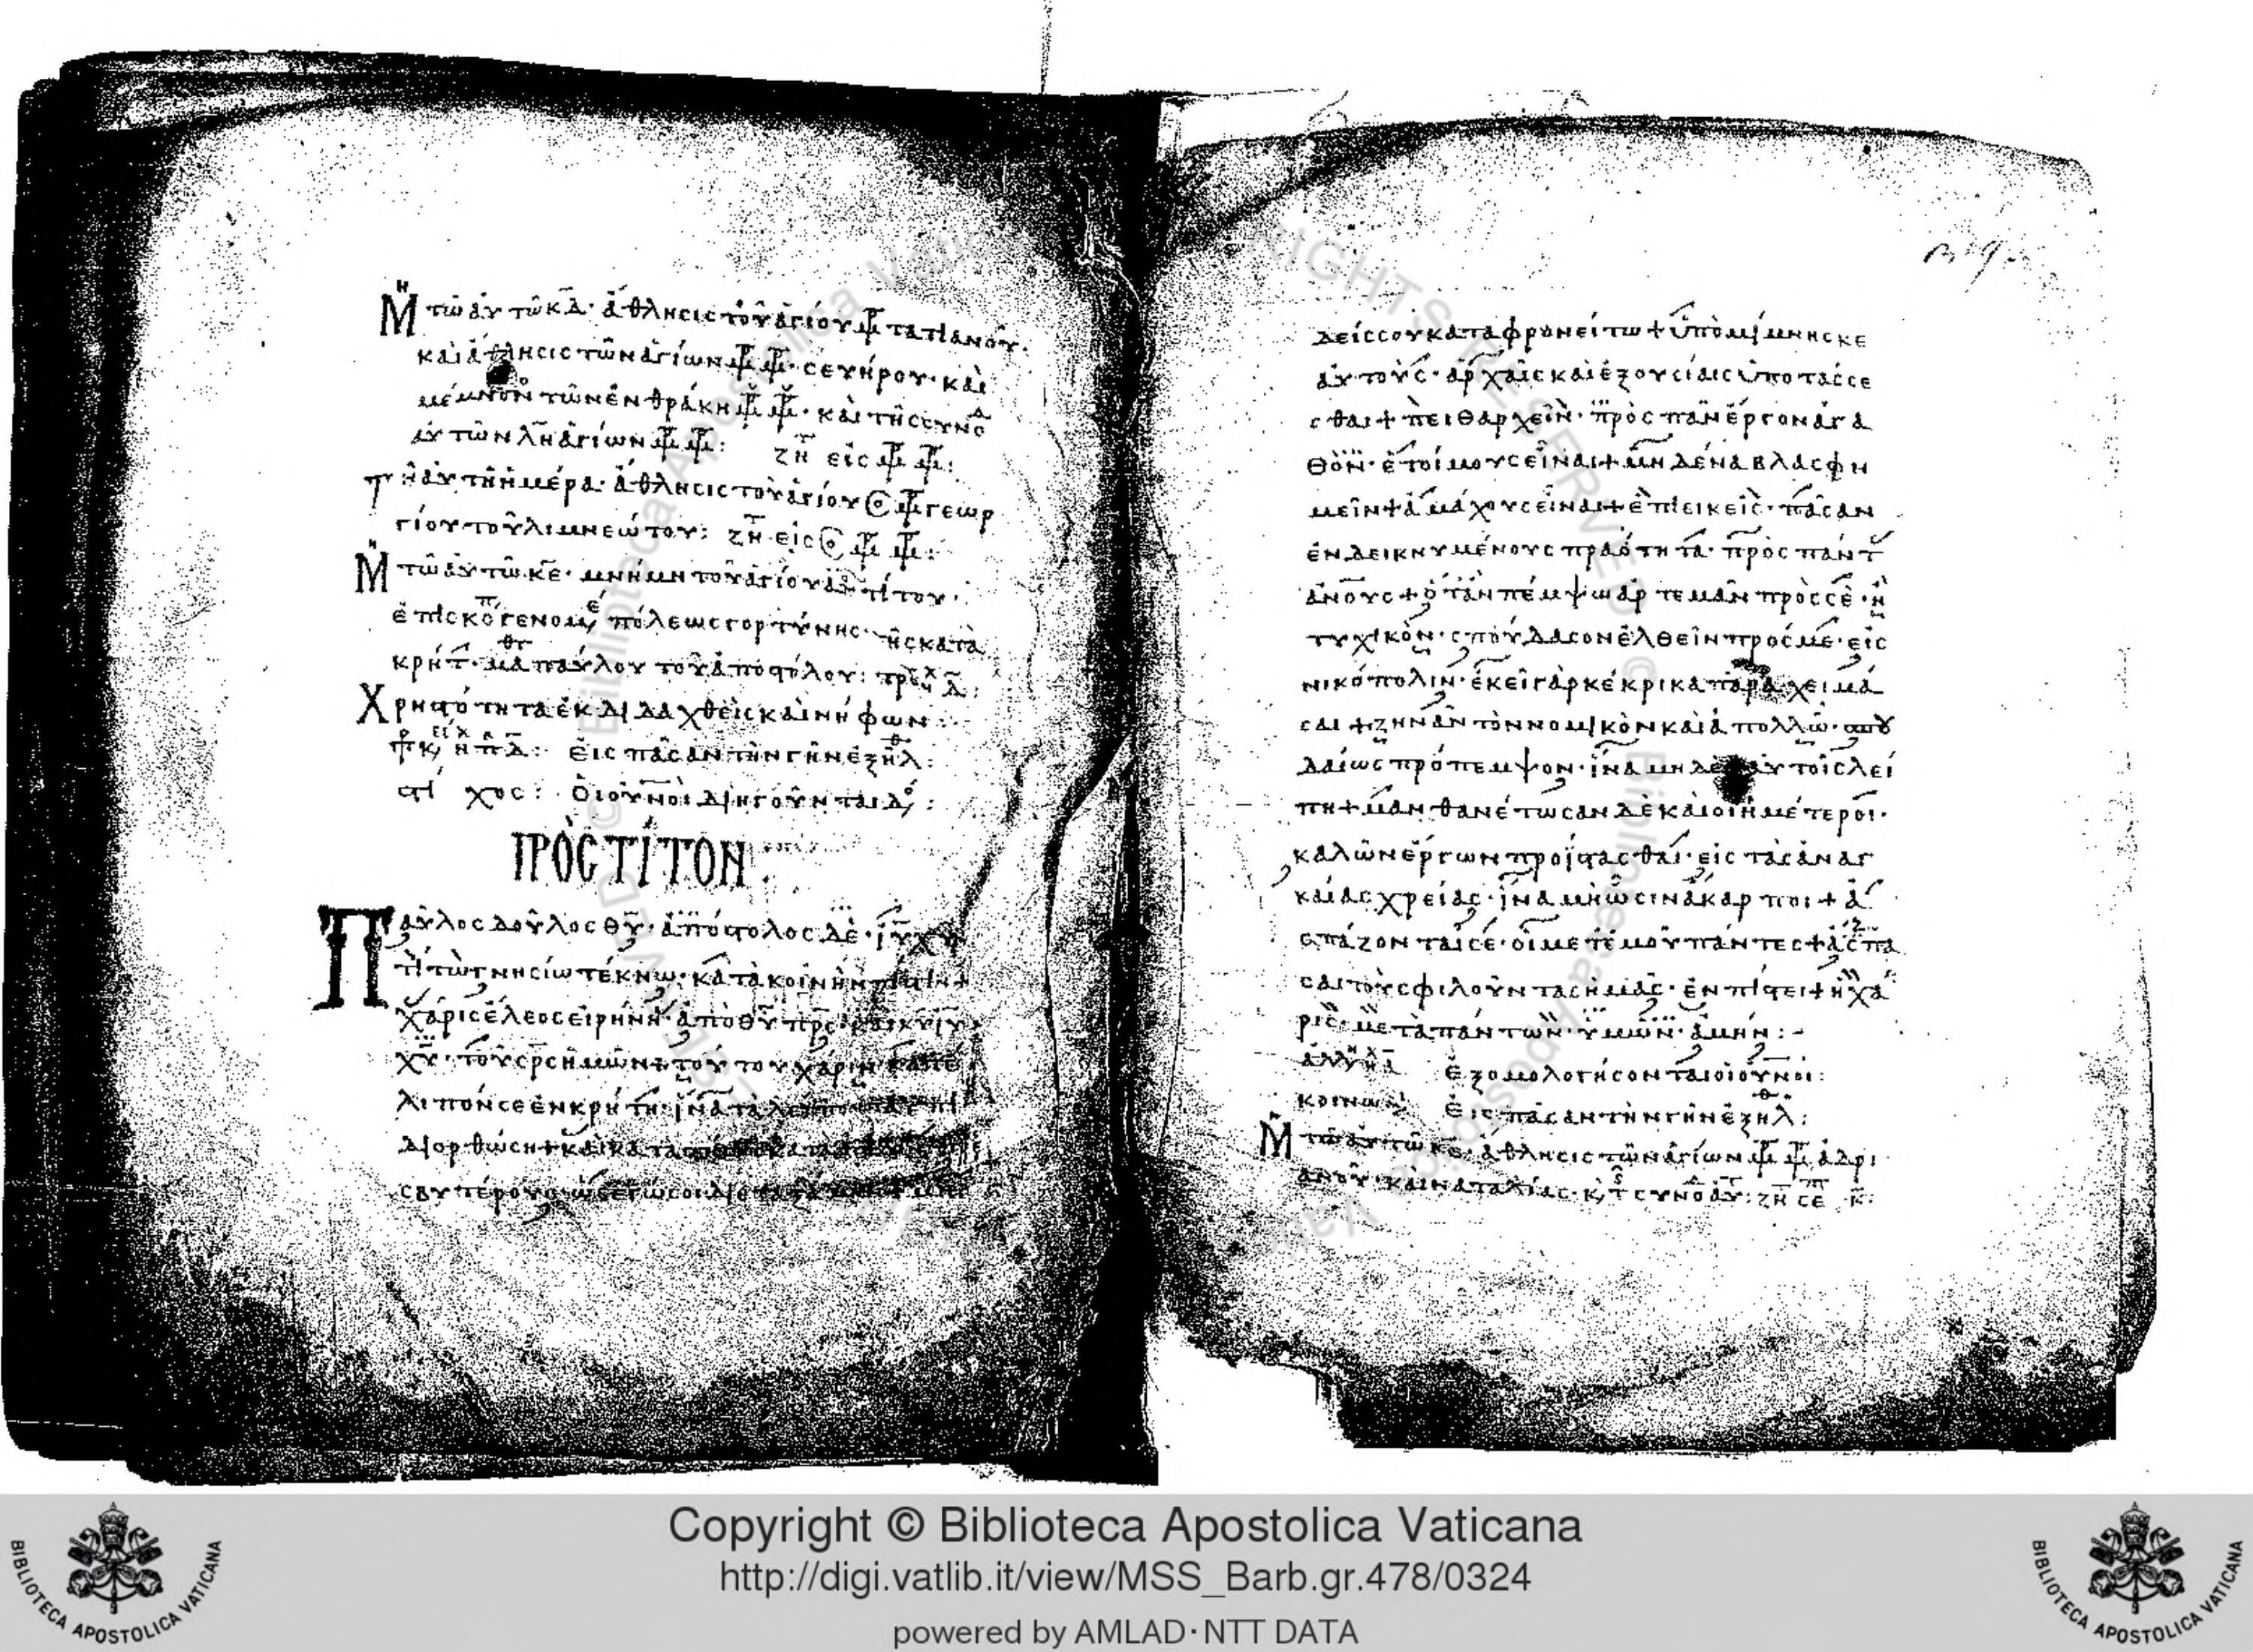 Μη τῶ αὐτῶ κδ· ἄθλησις τοῦ ἁγίου μρ τατιανοῦ·
καὶ ἄθλησις τῶν ἁγίων μρ μρ· σευήρου· καὶ
μέμνον τῶν ἐν θράκη μρ μρ· καὶ τῆς συνοδ
αὐτῶν λη ἁγίων μρ μρ: ζη εἰς μρ μρ:
Τῆ αὐτῆ ἡμέρα· ἄθλησις τοῦ ἁγίου μρ γεωρ
γίου τοῦ λιμνεώτου: ζη εἰς μρ μρ:
Μη τῶ αὐτῶ κε· μνήμη τοῦ ἁγίου τίτου·
ἐπισκο γενομε πόλεως γορτύνης· τῆς κατὰ
κρήτ· μαθτ παύλου τοῦ ἀποστόλου:
Χρηστότητα ἐκδιδαχθεὶς καὶ νήφων:
εἰς πᾶσαν τὴν γῆν ἐξῆλθ:
στίχος: Οἱ οὐνοὶ διηγοῦνται δο:
ΠΡΟΣ ΤΙΤΟΝ:
Παῦλος δοῦλος θυ· ἀπόστολος δὲ· ιυ χυ
τίτω γνησίω τέκνω· κατὰ κοινὴν πίστιν+
χάρις ἔλεος εἰρήνη· ἀπὸ θυ πρς· καὶ κυ ιυ
χυ· τοῦ σρς ἡμῶν+ τούτου χάριν κατέ
λιπόν σε ἐν κρήτη· ἵνα τὰ λείποντα ἐπι
διορθώση+ καὶ κατα
σβυτέρους· ὡς ἐγώ σοι
δείς σου καταφρονείτω+ ὑπομίμνησκε
αὐτούς· ἀρχαῖς καὶ ἐξουσίαις ὑποτάσσε
σθαι+ πειθαρχεῖν· πρὸς πᾶν ἔργον ἀγα
θὸν· ἑτοίμους εἶναι+ μηδένα βλασφη
μεῖν+ ἀμάχους εἶναι+ ἐπιεικεῖς· πᾶσαν
ἐνδεικνυμένους πραότητα· πρὸς πάντ
ανους+ ὅταν πέμψω ἀρτεμᾶν πρὸς σὲ· ἢ
τυχικὸν· σπούδασον ἐλθεῖν πρός με· εἰς
νικόπολιν· ἐκεῖ γὰρ κέκρικα παραχειμά
σαι+ ζηνᾶν τὸν νομικὸν καὶ ἀπολλὼ· σπου
δαίως πρόπεμψον· ἵνα μηδὲν αὐτοῖς λεί
πη+ μανθανέτωσαν δὲ καὶ οἱ ἡμέτεροι·
καλῶν ἔργων προΐστασθαι· εἰς τὰς ἀναγ
καίας χρείας· ἵνα μὴ ὦσιν ἄκαρποι+ ἀ
σπάζονταί σε· οἱ μετ ἐμοῦ πάντες+ ἄσπα
σαι τοὺς φιλοῦντας ἡμᾶς· ἐν πίστει+ ἡ χά
ρις· μετὰ πάντων ὑμῶν· ἀμήν:-
ἐξομολογήσονται οἱ οὐνοὶ:
κοινων εἰς πᾶσαν τὴν γῆν ἐξῆλθ:
Μη τῶ αὐτῶ κς· ἄθλησις τῶν ἁγίων μρ μρ ἀδρι
ανοῦ· καὶ ναταλίας· κ τς συνοδ αὐτ: ζη σεπ κ:
Copyright © Biblioteca Apostolica Vaticana
http://digi.vatlib.it/view/MSS_Barb.gr.478/0324
powered by AMLAD·NTT DATA
BIBLIOTECA APOSTOLICA VATICANA
BIBLIOTECA APOSTOLICA VATICANA